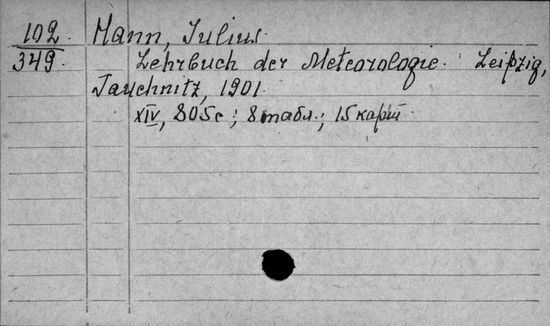 102. Mann, Iulius.
349. Lehrbuch der Meteorologie. Leipzig,
Tauchnitz, 1901.
XIV, 805c; 8 табл.; 15 карт